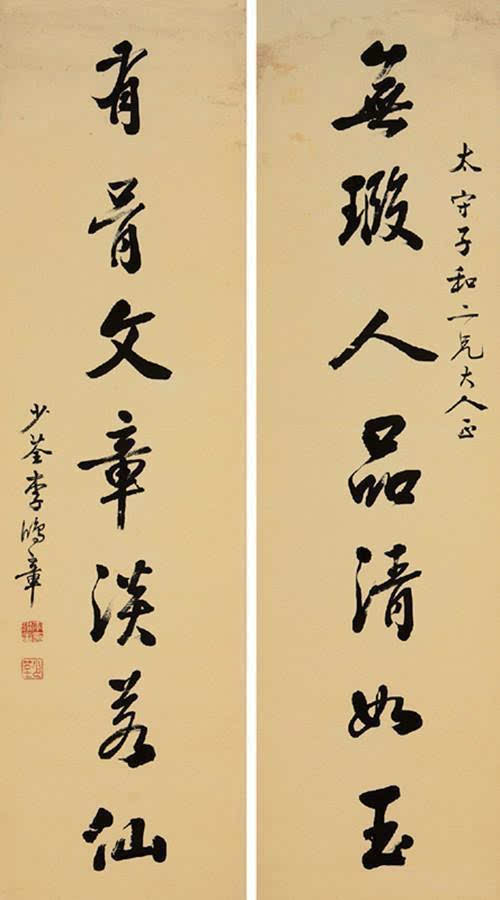 太守子和二兄大人正
無瑕人品清如玉
有骨文章淡若仙
少荃李鴻章